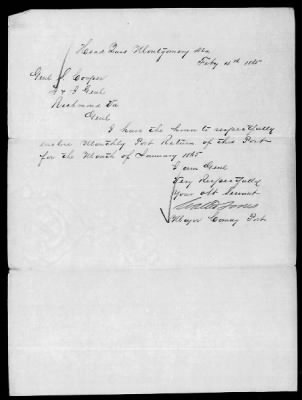 Head Qurs Montgomery Ala
Feby 4th 1865
Genl S. Cooper
A & I Genl
Richmond Va
Genl
I have the honor to respectfully
enclose Monthly Post Return of this Post
for the Month of January 1865
I am Genl
Very Respectfully
Your obt Servant
Walter Jones
Major Comdg Post